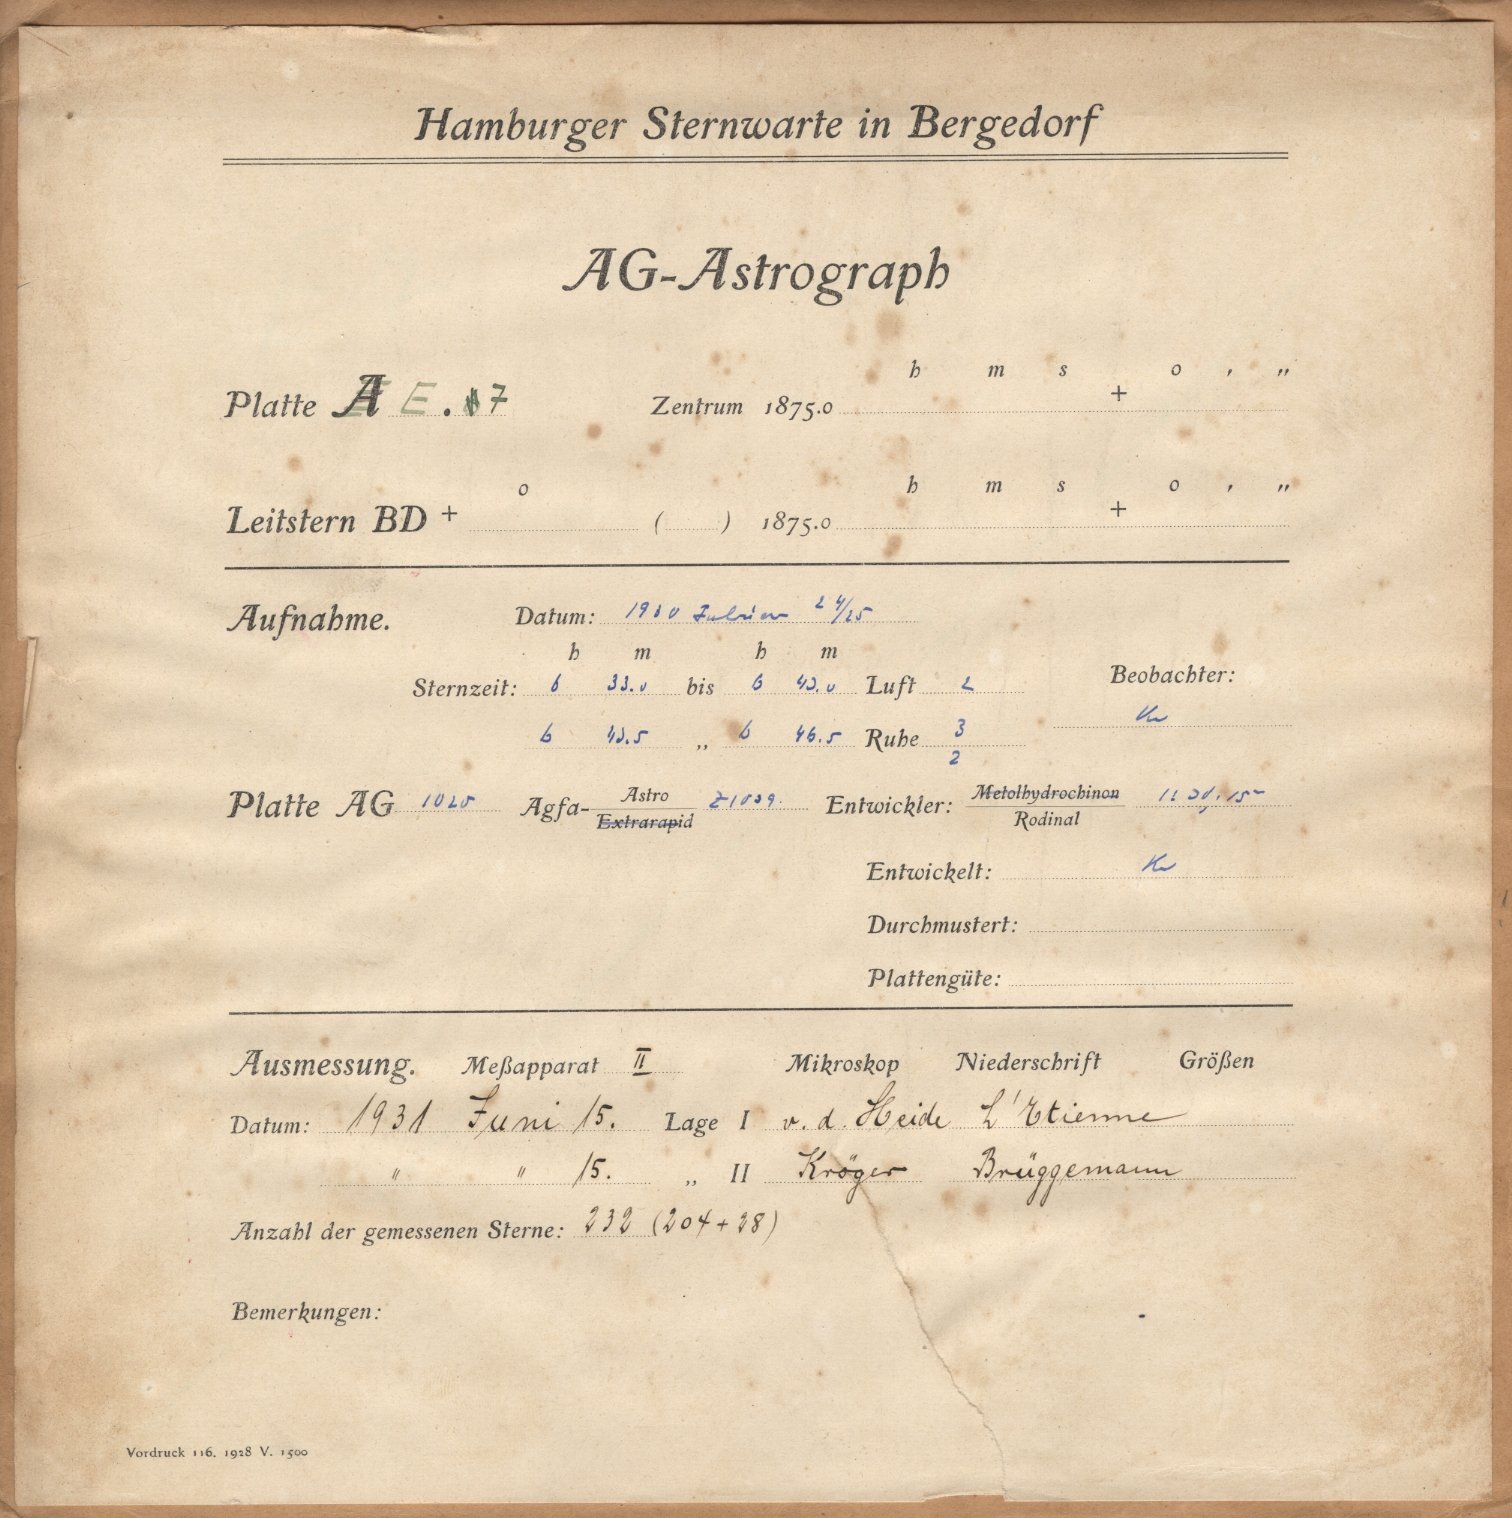 Hamburger Sternwarte in Bergedorf
AG-Astrograph
h m s o , „
Platte E . 7 Zentrum 1875.0 +
o h m s o , „
Leitstern BD + ( ) 1875.0 +
Aufnahme. Datum: 1930 Februar 24/25
h m h m
Sternzeit: 6 33.0 bis 6 43.0 Luft 2 Beobachter:
6 43.5 „ 6 46.5 Ruhe 3 Kr
2
Platte AG 1020 Agfa- Astro Z1039. Entwickler: Metolhydrochinon
Extrarapid Rodinal
Entwickelt: Kr
Durchmustert:
Plattengüte:
Ausmessung. Meßapparat II Mikroskop Niederschrift Größen
Datum: 1931 Juni 15. Lage I v. d. Heide L'Etienne
" " 15. „ II Kröger Brüggemann
Anzahl der gemessenen Sterne: 232 (204+28)
Bemerkungen:
Vordruck 116. 1928 V. 1500